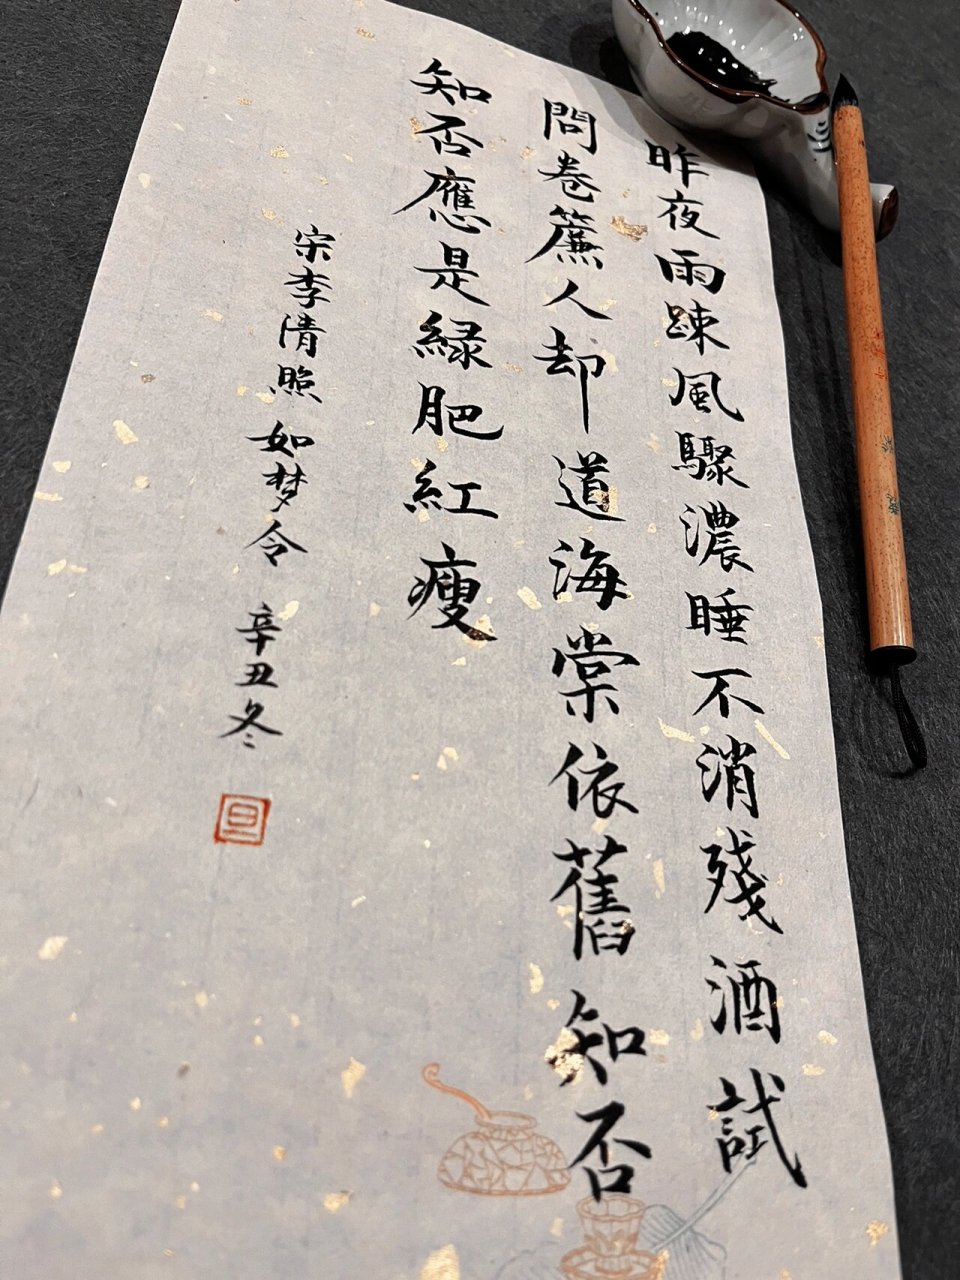 昨夜雨踈風驟濃睡不消殘酒試
問卷簾人却道海棠依舊知否
知否應是緑肥紅瘦
宋李清照如梦令 辛丑冬
旦